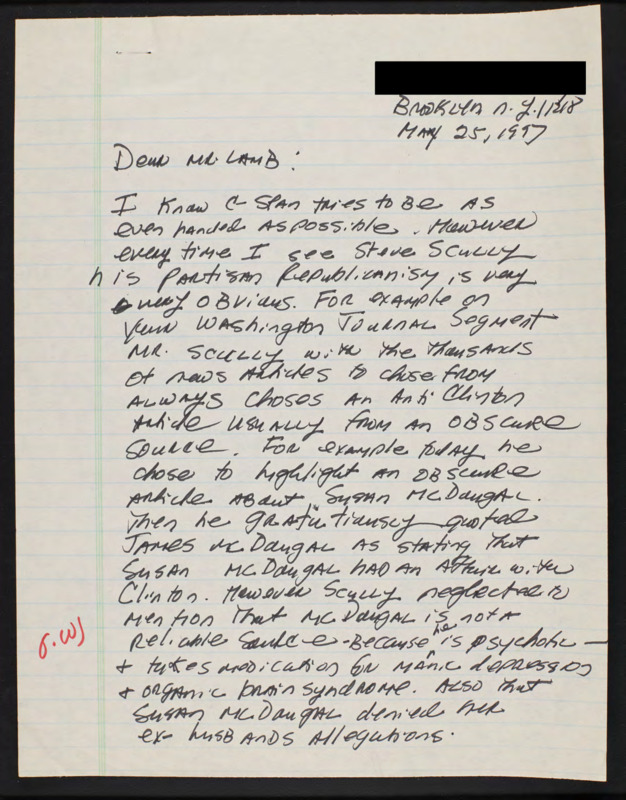 Brooklyn N.Y. 11218
May 25, 1997
Dear Mr. Lamb:
I know C-Span tries to be as
even handed as possible. However
every time I see Steve Scully
his partisan Republicanism is very
very obvious. For example on
your Washington Journal segment
Mr. Scully with the thousands
of news articles to chose from
always choses an anti Clinton
article usually from an obscure
source. For example today he
chose to highlight an obscure
article about Susan McDougal.
Then he gratuitiously quoted
James McDougal as stating that
Susan McDougal had an affair with
Clinton. However Scully neglected to
mention that McDougal is not a
reliable source - because he is psychotic -
+ takes medication for manic depression
+ organic brain syndrome. Also that
Susan McDougal denied her
ex-husbands allegations.